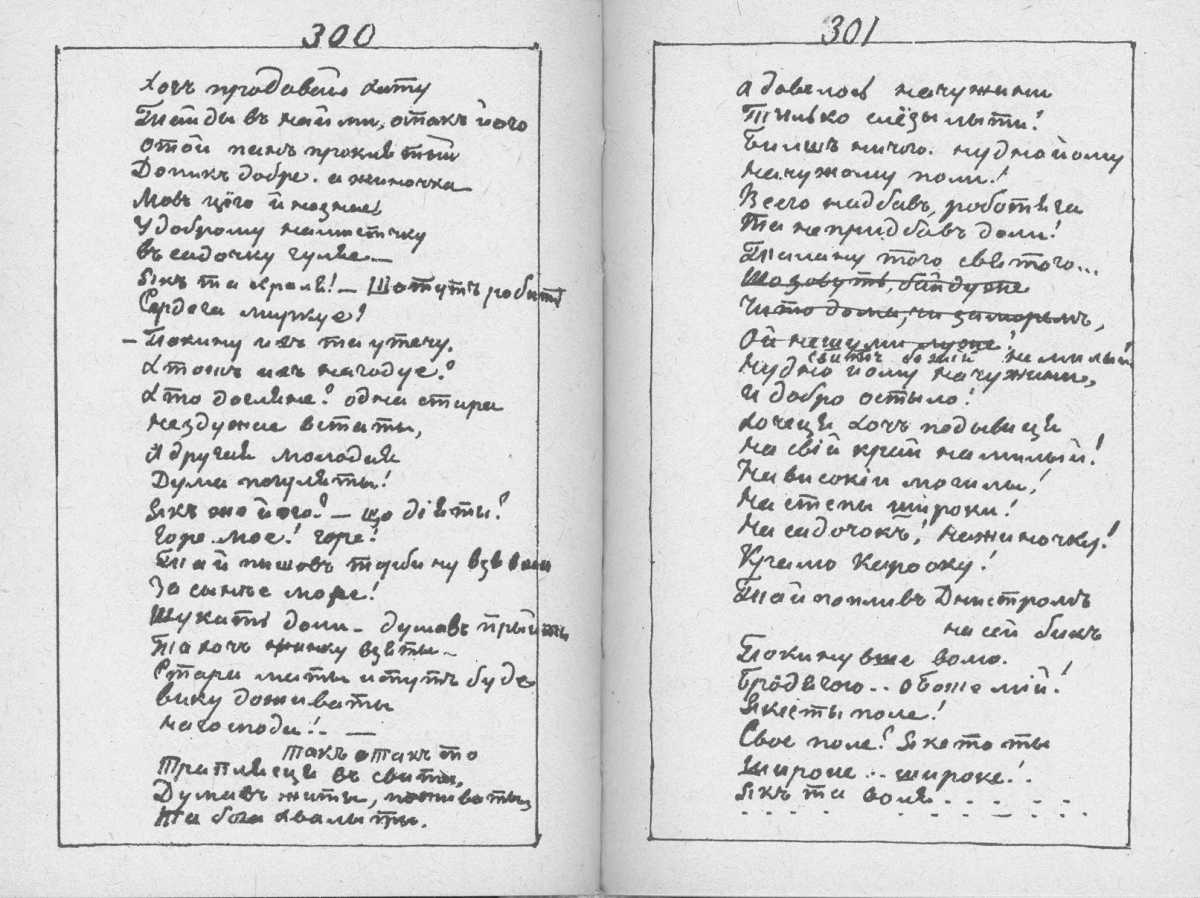 300
Хочъ продавай хату
Тай йды въ найми, отакъ його
Отой панъ проклятый
Допикъ добре. а жиночка
Мовъ цёго й незнае
У доброму намистичку
Въ садочку гуляе —
Якъ та краля! — Шо тутъ робыть
Сердега миркуе!
— Покину ихъ та утечу.
Хтожъ ихъ нагодуе?
Хто догляне? одна стара
Нездужае встаты,
А другая молодая
Дума погуляты!
Якъ оно його? — що діяты?
Горе мое! горе!
Тай пишовъ торбину взявши
За сынье море!
Шукать доли — думавъ прыйты
Та хочъ жинку взяты —
Стари маты и тутъ буде
Вику доживаты
На господи! —
такъ отакъ то
Трапляеця въ свити,
Думавъ жыты, поживаты
Та бога хвалыты.
301
А довелось на чужини
Тилько слёзы лыты!
Билшъ ничого. нудно йому
На чужому поли!
Всего надбавъ, роботяга
Та не придбавъ доли!
Талану того святого...
Шо зовуть, байдуже
Чи то дома, чи за моремъ,
Світъ божій не милый
Нудно йому на чужини,
И добро остыло!
Хочеця хочъ подывиця
На свій край на милый!
На високіи могилы!
На степы широки!
На садочокъ! на жиночку!
Кралю Карооку!
Тай поплывъ Днистромъ
на сей бикъ
Покинувше волю.
Бродягою.. о боже мій!
Якесь ты поле!
Свое поле! Яке то ты
Широке... широке!.
Якъ та воля . . . . . .
. . . . . . . . . . .